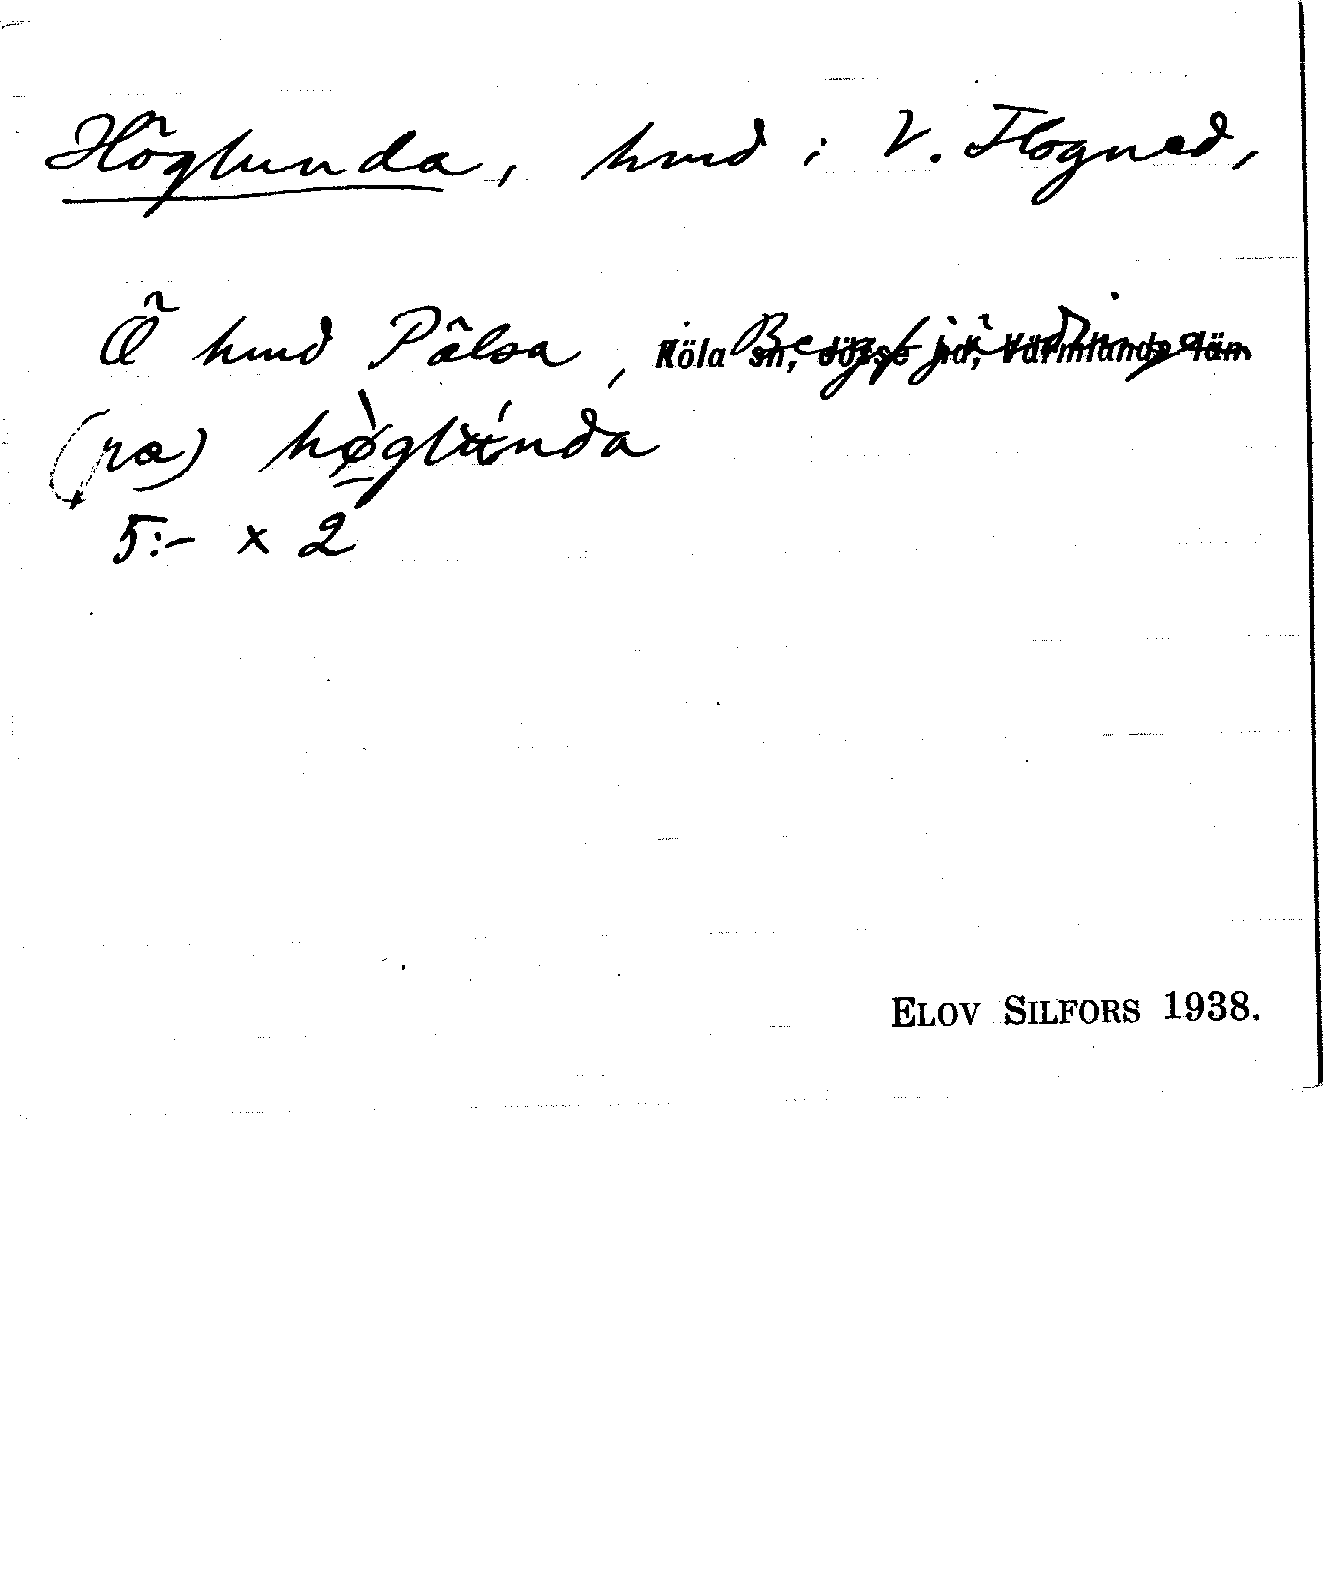 Höglunda, hmd i V. Flogned,
Ö hmd Pålsa, Köla sn, Jösse hd, Värmlands län
(pa) hø̀glúnda
5:- x 2
ELOV SILFORS 1938.